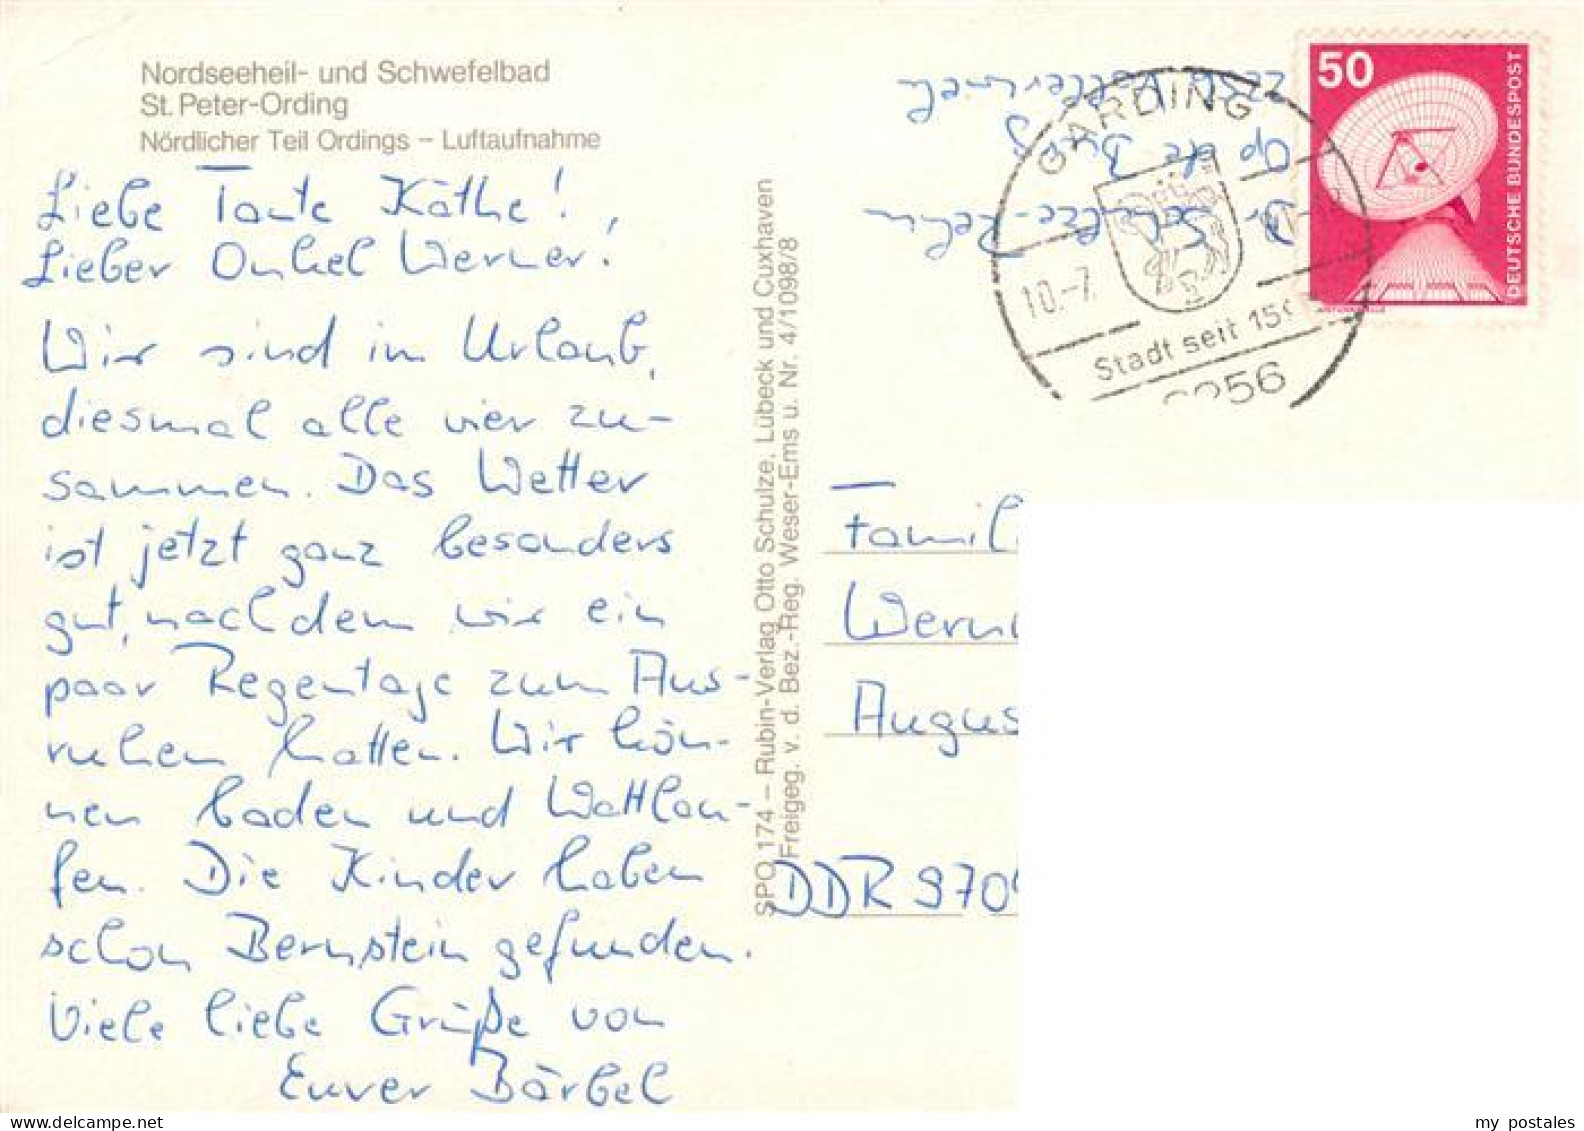 Nordseeheil- und Schwefelbad
St. Peter-Ording
Nördlicher Teil Ordings – Luftaufnahme
Liebe Tante Käthe!,
Lieber Onkel Werner!
Wir sind im Urlaub,
diesmal alle vier zu-
sammen. Das Wetter
ist jetzt ganz besonders
gut, nachdem wir ein
paar Regentage zum Aus-
ruhen hatten. Wir kön-
nen baden und Wattlau-
fen. Die Kinder haben
schon Bernstein gefunden.
Viele liebe Grüße von
Eurer Bärbel
SPO 174 – Rubin-Verlag Otto Schulze, Lübeck und Cuxhaven
Freigeg. v. d. Bez.-Reg. Weser-Ems u. Nr. 4/1098/8
Dr. Schulze-
Op de
GARDING
10.-7.
Stadt seit 159
2256
50
DEUTSCHE BUNDESPOST
Famil
Wern
Augus
DDR 970
my postales